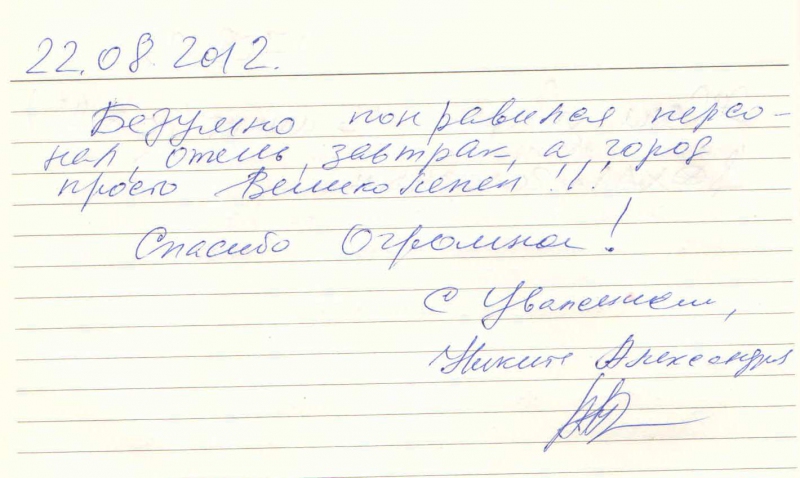 22.08.2012.
Безумно понравился персо-
нал, отель, завтрак, а город
просто Великолепен!!!
Спасибо Огромное!
С Уважением,
Никита Александр